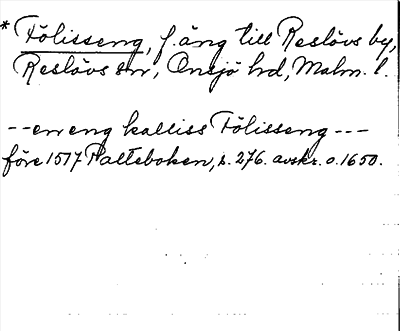 * Fölisseng, f. äng till Reslövs by,
Reslövs sn, Onsjö hd, Malm. l.
--en eng kalliss Fölisseng---
före 1517 Palteboken, s. 276. avskr. o. 1650.